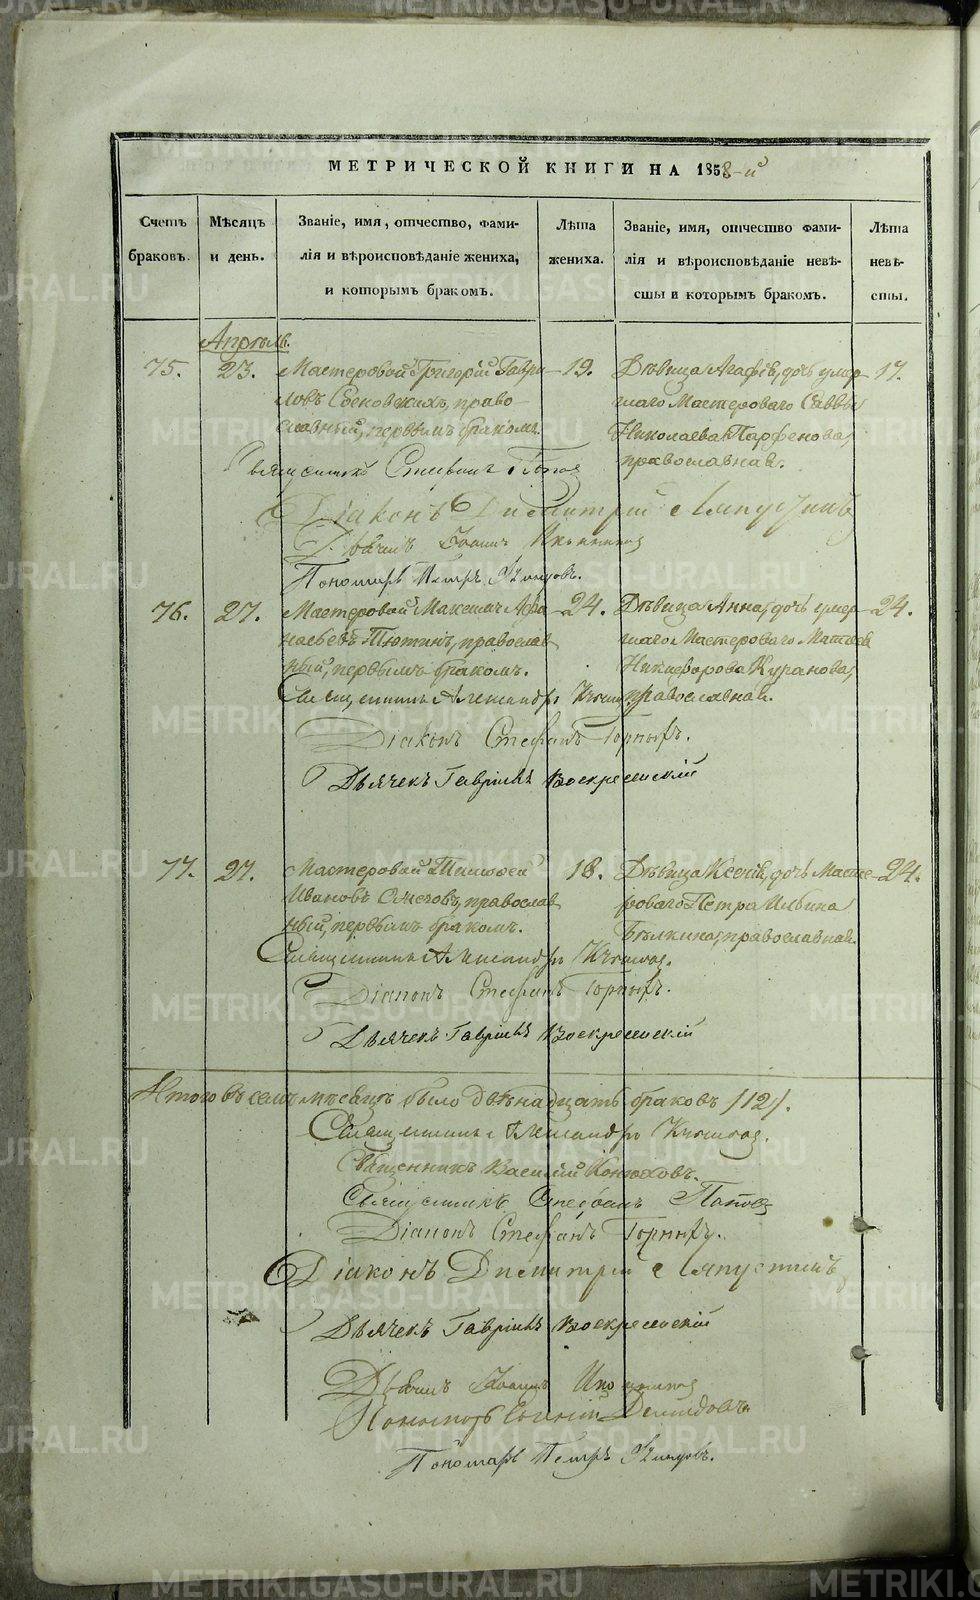 МЕТРИЧЕСКОЙ КНИГИ НА 1858-й
Счетъ браковъ.
Мѣсяцъ и день.
Званіе, имя, отчество, фамилія и вѣроисповѣданіе жениха, и которымъ бракомъ.
Лѣта жениха.
Званіе, имя, отчество фамилія и вѣроисповѣданіе невѣсты и которымъ бракомъ.
Лѣта невѣсты.
Апрѣль.
75. 23. Мастеровой Григорій Гаври- 19. Дѣвица Агафія, дочь умер- 17.
ловъ право- шаго Мастероваго Саввы
славный, первымъ бракомъ. Николаева Парфенова,
православная.
Священникъ Стефанъ Поповъ
Діаконъ Димитрій Ляпустинъ
Дьячекъ Іоаннъ
Пономарь Петръ
76. 27. Мастеровой Максимъ Афа- 24. Дѣвица Анна, дочь умер- 24.
насьевъ Тютинъ, православ- шаго Мастероваго Матвея
ный, первымъ бракомъ. Никифорова Куранова,
Священникъ Александръ православная.
Діаконъ Стефанъ Горныхъ.
Дьячекъ Гавріилъ Воскресенскій
77. 27. Мастеровой Тимофей 18. Дѣвица Ксенія, дочь Масте- 24.
Ивановъ православ- роваго Петра Ильина
ный, первымъ бракомъ. Бѣлкина, православная.
Священникъ Александръ
Діаконъ Стефанъ Горныхъ.
Дьячекъ Гавріилъ Воскресенскій
Итого въ семъ мѣсяцѣ было двѣнадцать браковъ /12/.
Священникъ Александръ
Священникъ Василій Конюховъ.
Священникъ Стефанъ Поповъ
Діаконъ Стефанъ Горныхъ.
Діаконъ Димитрій Ляпустинъ
Дьячекъ Гавріилъ Воскресенскій
Дьячекъ Іоаннъ
Пономарь Демидовъ
Пономарь Петръ
METRIKI.GASO-URAL.RU